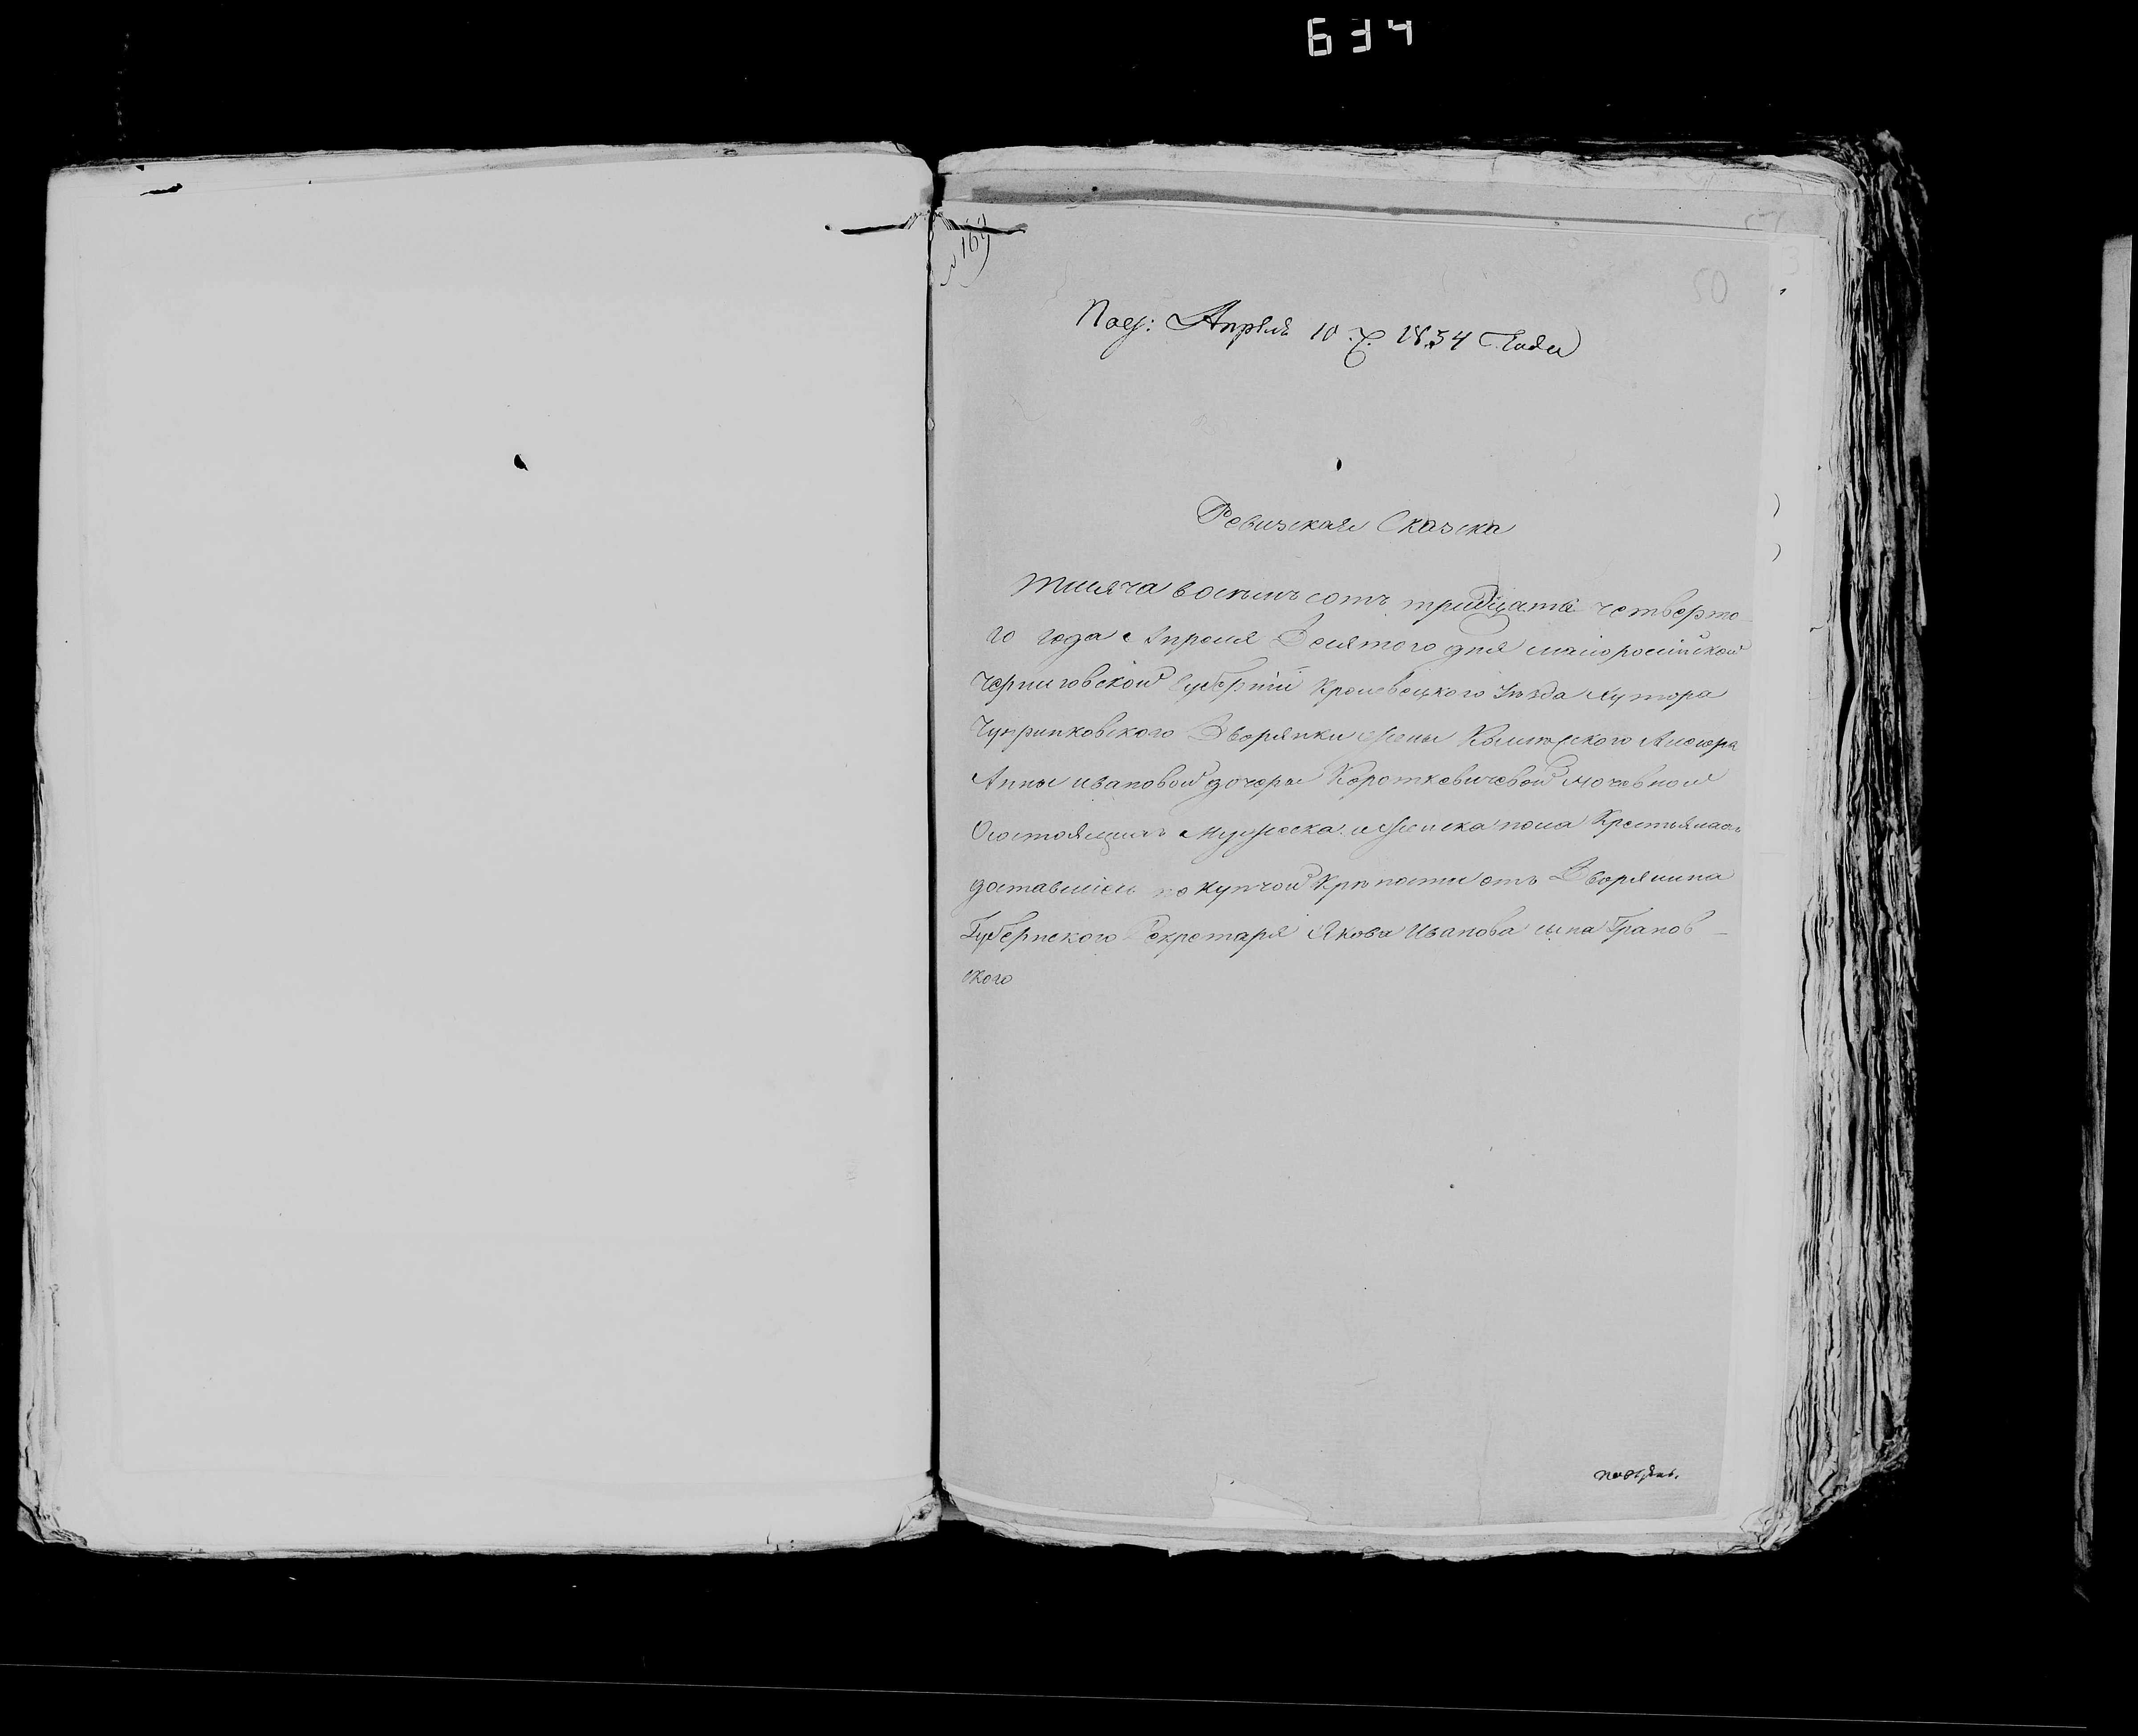 634
№ 169
50
Под: Апреля 10. д. 1834 Года
Ревизская Сказка
тисяча восемь сотъ тридцать четверто
го года Апреля Десятого дня малороссийской
Черниговской Губернїи Кролевецкого Уезда Хутора
Чупринковского Дворянки жены Колежского Асесора
Анны ивановой дочери Короткевичевой
Состоящихъ Мужеска и женска пола Крестьянахъ
доставшихся по купчой Крепости отъ Дворянина
Губернского Секретаря Якова Иванова сына Гранов-
ского